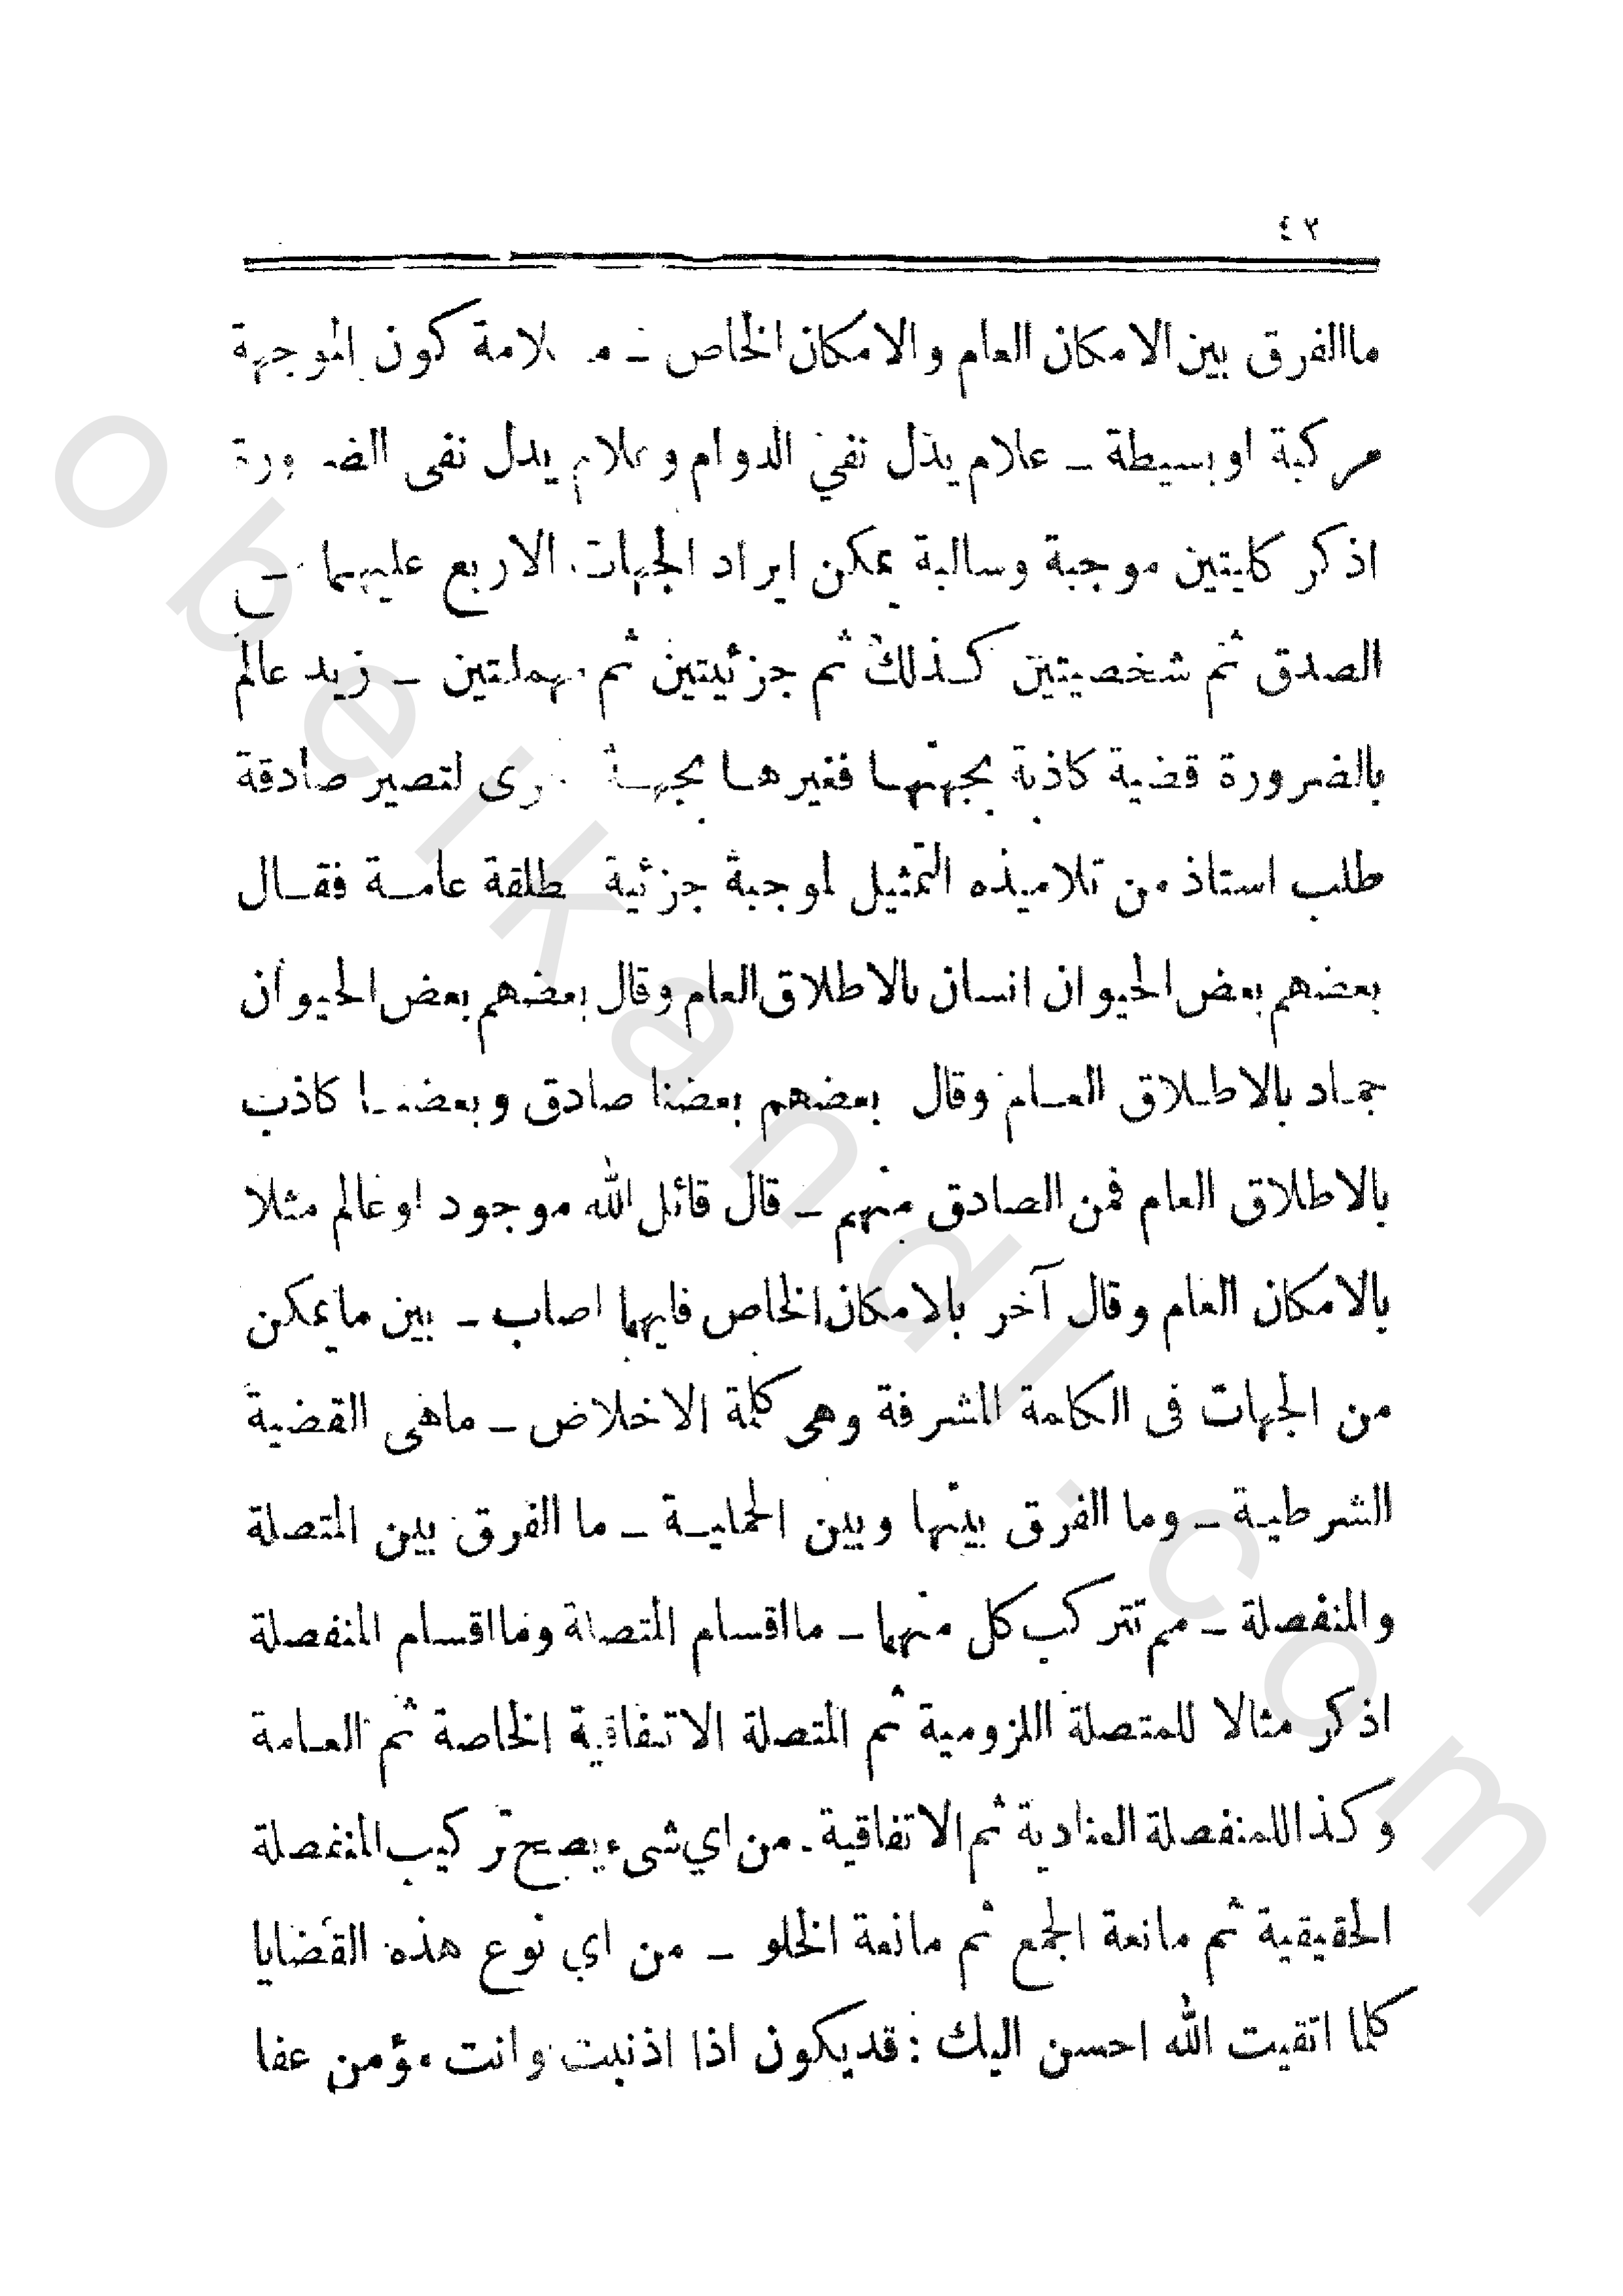 ٤٢
ماالفرق بين الامكان العام والامكان الخاص ـ ما علامة كون الموجهة
مركبة او بسيطة ـ علام يدل نفي الدوام وعلام يدل نفى الضرورة
اذكر كليتين موجبة وسالبة يمكن ايراد الجهات الاربع عليهما مع
الصدق ثم شخصيتين كذلك ثم جزئيتين ثم مهملتين ـ زيد عالم
بالضرورة قضية كاذبة بجهتها فغيرها بجهة اخرى لتصير صادقة
طلب استاذ من تلاميذه التمثيل لموجبة جزئية مطلقة عامة فقال
بعضهم بعض الحيوان انسان بالاطلاق العام وقال بعضهم بعض الحيوان
جماد بالاطلاق العام وقال بعضهم بعضنا صادق وبعضنا كاذب
بالاطلاق العام فمن الصادق منهم ـ قال قائل الله موجود او عالم مثلا
بالامكان العام وقال آخر بالامكان الخاص فايهما اصاب ـ بين مايمكن
من الجهات فى الكلمة المشرفة وهى كلمة الاخلاص ـ ماهى القضية
الشرطية ـ وما الفرق بينها وبين الحملية ـ ما الفرق بين المتصلة
والمنفصلة ـ مم تتركب كل منهما ـ مااقسام المتصلة ومااقسام المنفصلة
اذكر مثالا للمتصلة اللزومية ثم المتصلة الاتفاقية الخاصة ثم العامة
وكذا اللمنفصلة العنادية ثم الاتفاقية ـ من اي شىء يصح تركيب المنفصلة
الحقيقية ثم مانعة الجمع ثم مانعة الخلو ـ من اي نوع هذه القضايا
كلما اتقيت الله احسن اليك : قديكون اذا اذنبت وانت مؤمن عفا
obeikandi.com